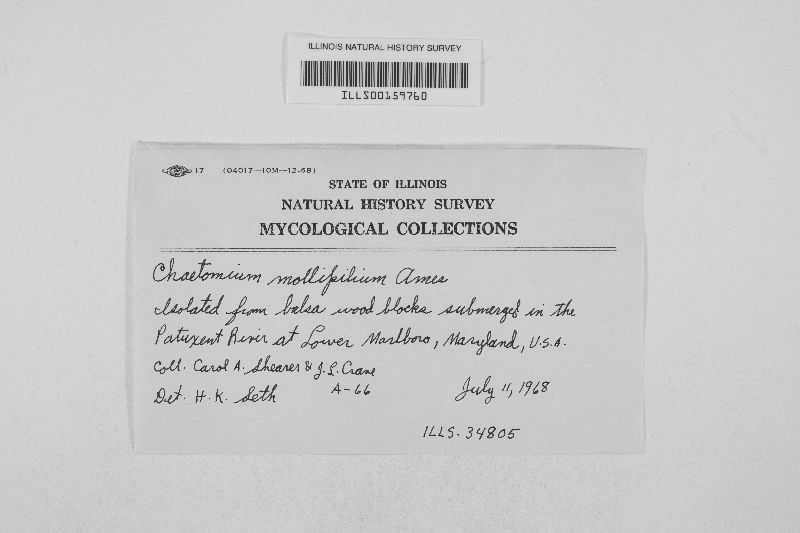 ILLINOIS NATURAL HISTORY SURVEY
ILLS00159760
17 (04017—10M—12-68)
STATE OF ILLINOIS
NATURAL HISTORY SURVEY
MYCOLOGICAL COLLECTIONS
Chaetomium mollipilium Ames
Isolated from balsa wood blocks submerged in the
Patuxent River at Lower Marlboro, Maryland, U.S.A.
Coll. Carol A. Shearer & J.L. Crane
Det. H. K. Seth A-66 July 11, 1968
ILLS. 34805